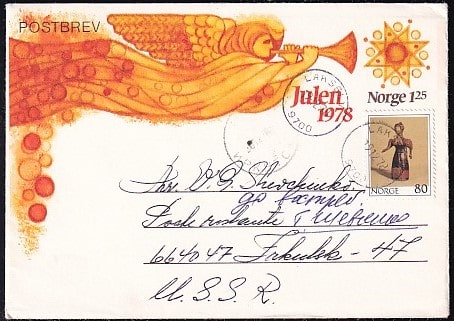 POSTBREV
Julen
1978
Norge 1.25
LAKSE
9700
NORGE 80
V. G. Shevchenko
Poste restante
664047 Irkutsk - 47
U. S. S. R.